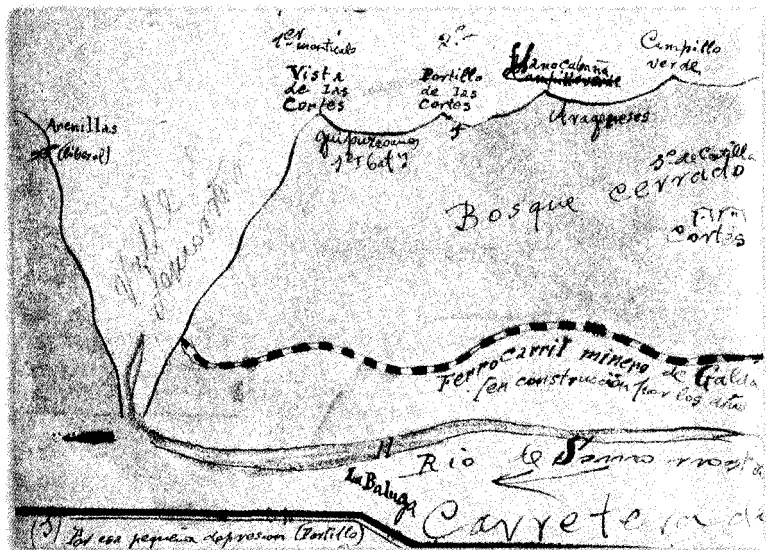 1er montículo
2º
Vista
de las
Cortes
Portillo
de las
Cortes
Llano cabaña
Campillo
verde
Arenillas
(liberal)
guipuzcoanos
Aragoneses
Valle
de Castilla
Bosque cerrado
Cortes
Ferrocarril minero de Galda
(en construcción por los año
Rio de Somorrost
La Baluga
Carretera d
(3) Por esa pequeña depresion (Portillo)